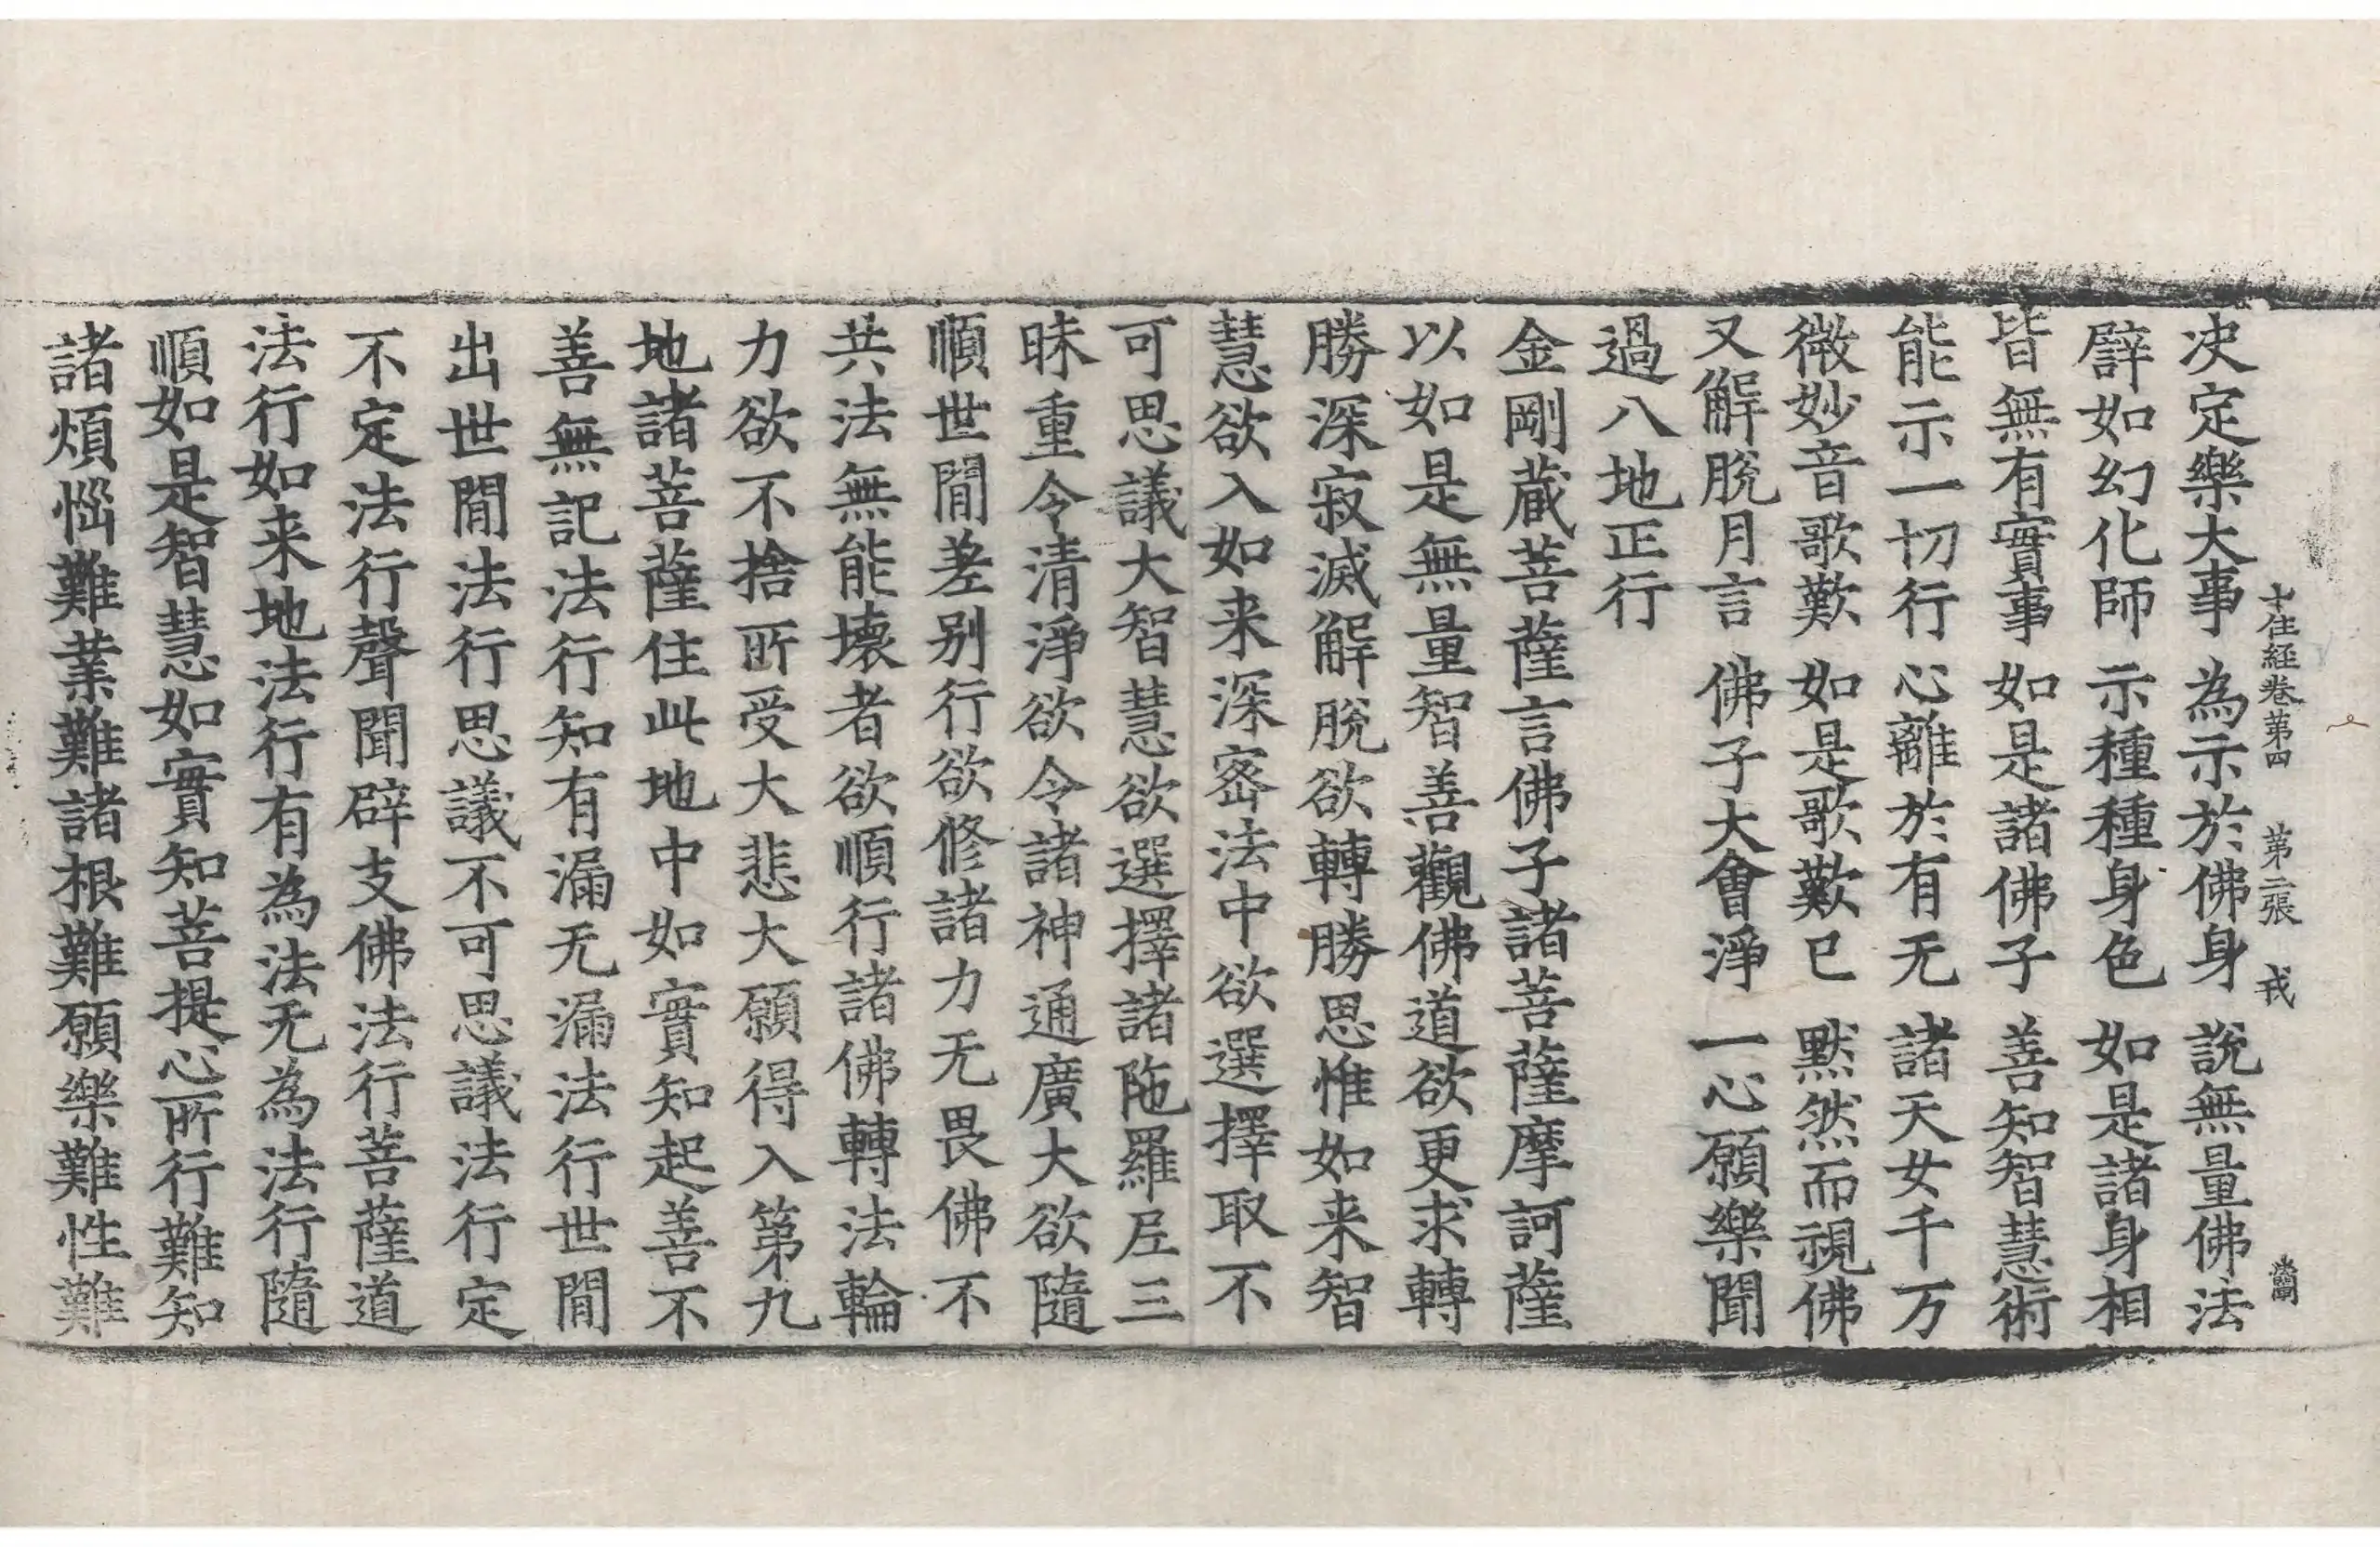 十住経卷第四 第二張 戎
决定樂大事 為示於佛身 說無量佛法
譬如幻化師 示種種身色 如是諸身相
皆無有實事 如是諸佛子 善知智慧術
能示一切行 心離於有无 諸天女千万
微妙音歌歎 如是歌歎已 黙然而視佛
又解脫月言 佛子大會淨 一心願樂聞
過八地正行
金剛蔵菩薩言佛子諸菩薩摩訶薩
以如是無量智善觀佛道欲更求轉
勝深寂滅解脫欲轉勝思惟如来智
慧欲入如来深密法中欲選擇取不
可思議大智慧欲選擇諸陁羅尼三
昧重令清淨欲令諸神通廣大欲隨
順世閒差别行欲修諸力无畏佛不
共法無能壊者欲順行諸佛轉法輪
力欲不捨所受大悲大願得入第九
地諸菩薩住此地中如實知起善不
善無記法行知有漏无漏法行世閒
出世閒法行思議不可思議法行定
不定法行聲聞辟支佛法行菩薩道
法行如来地法行有為法无為法行隨
順如是智慧如實知菩提心所行難知
諸煩惱難業難諸根難願樂難性難